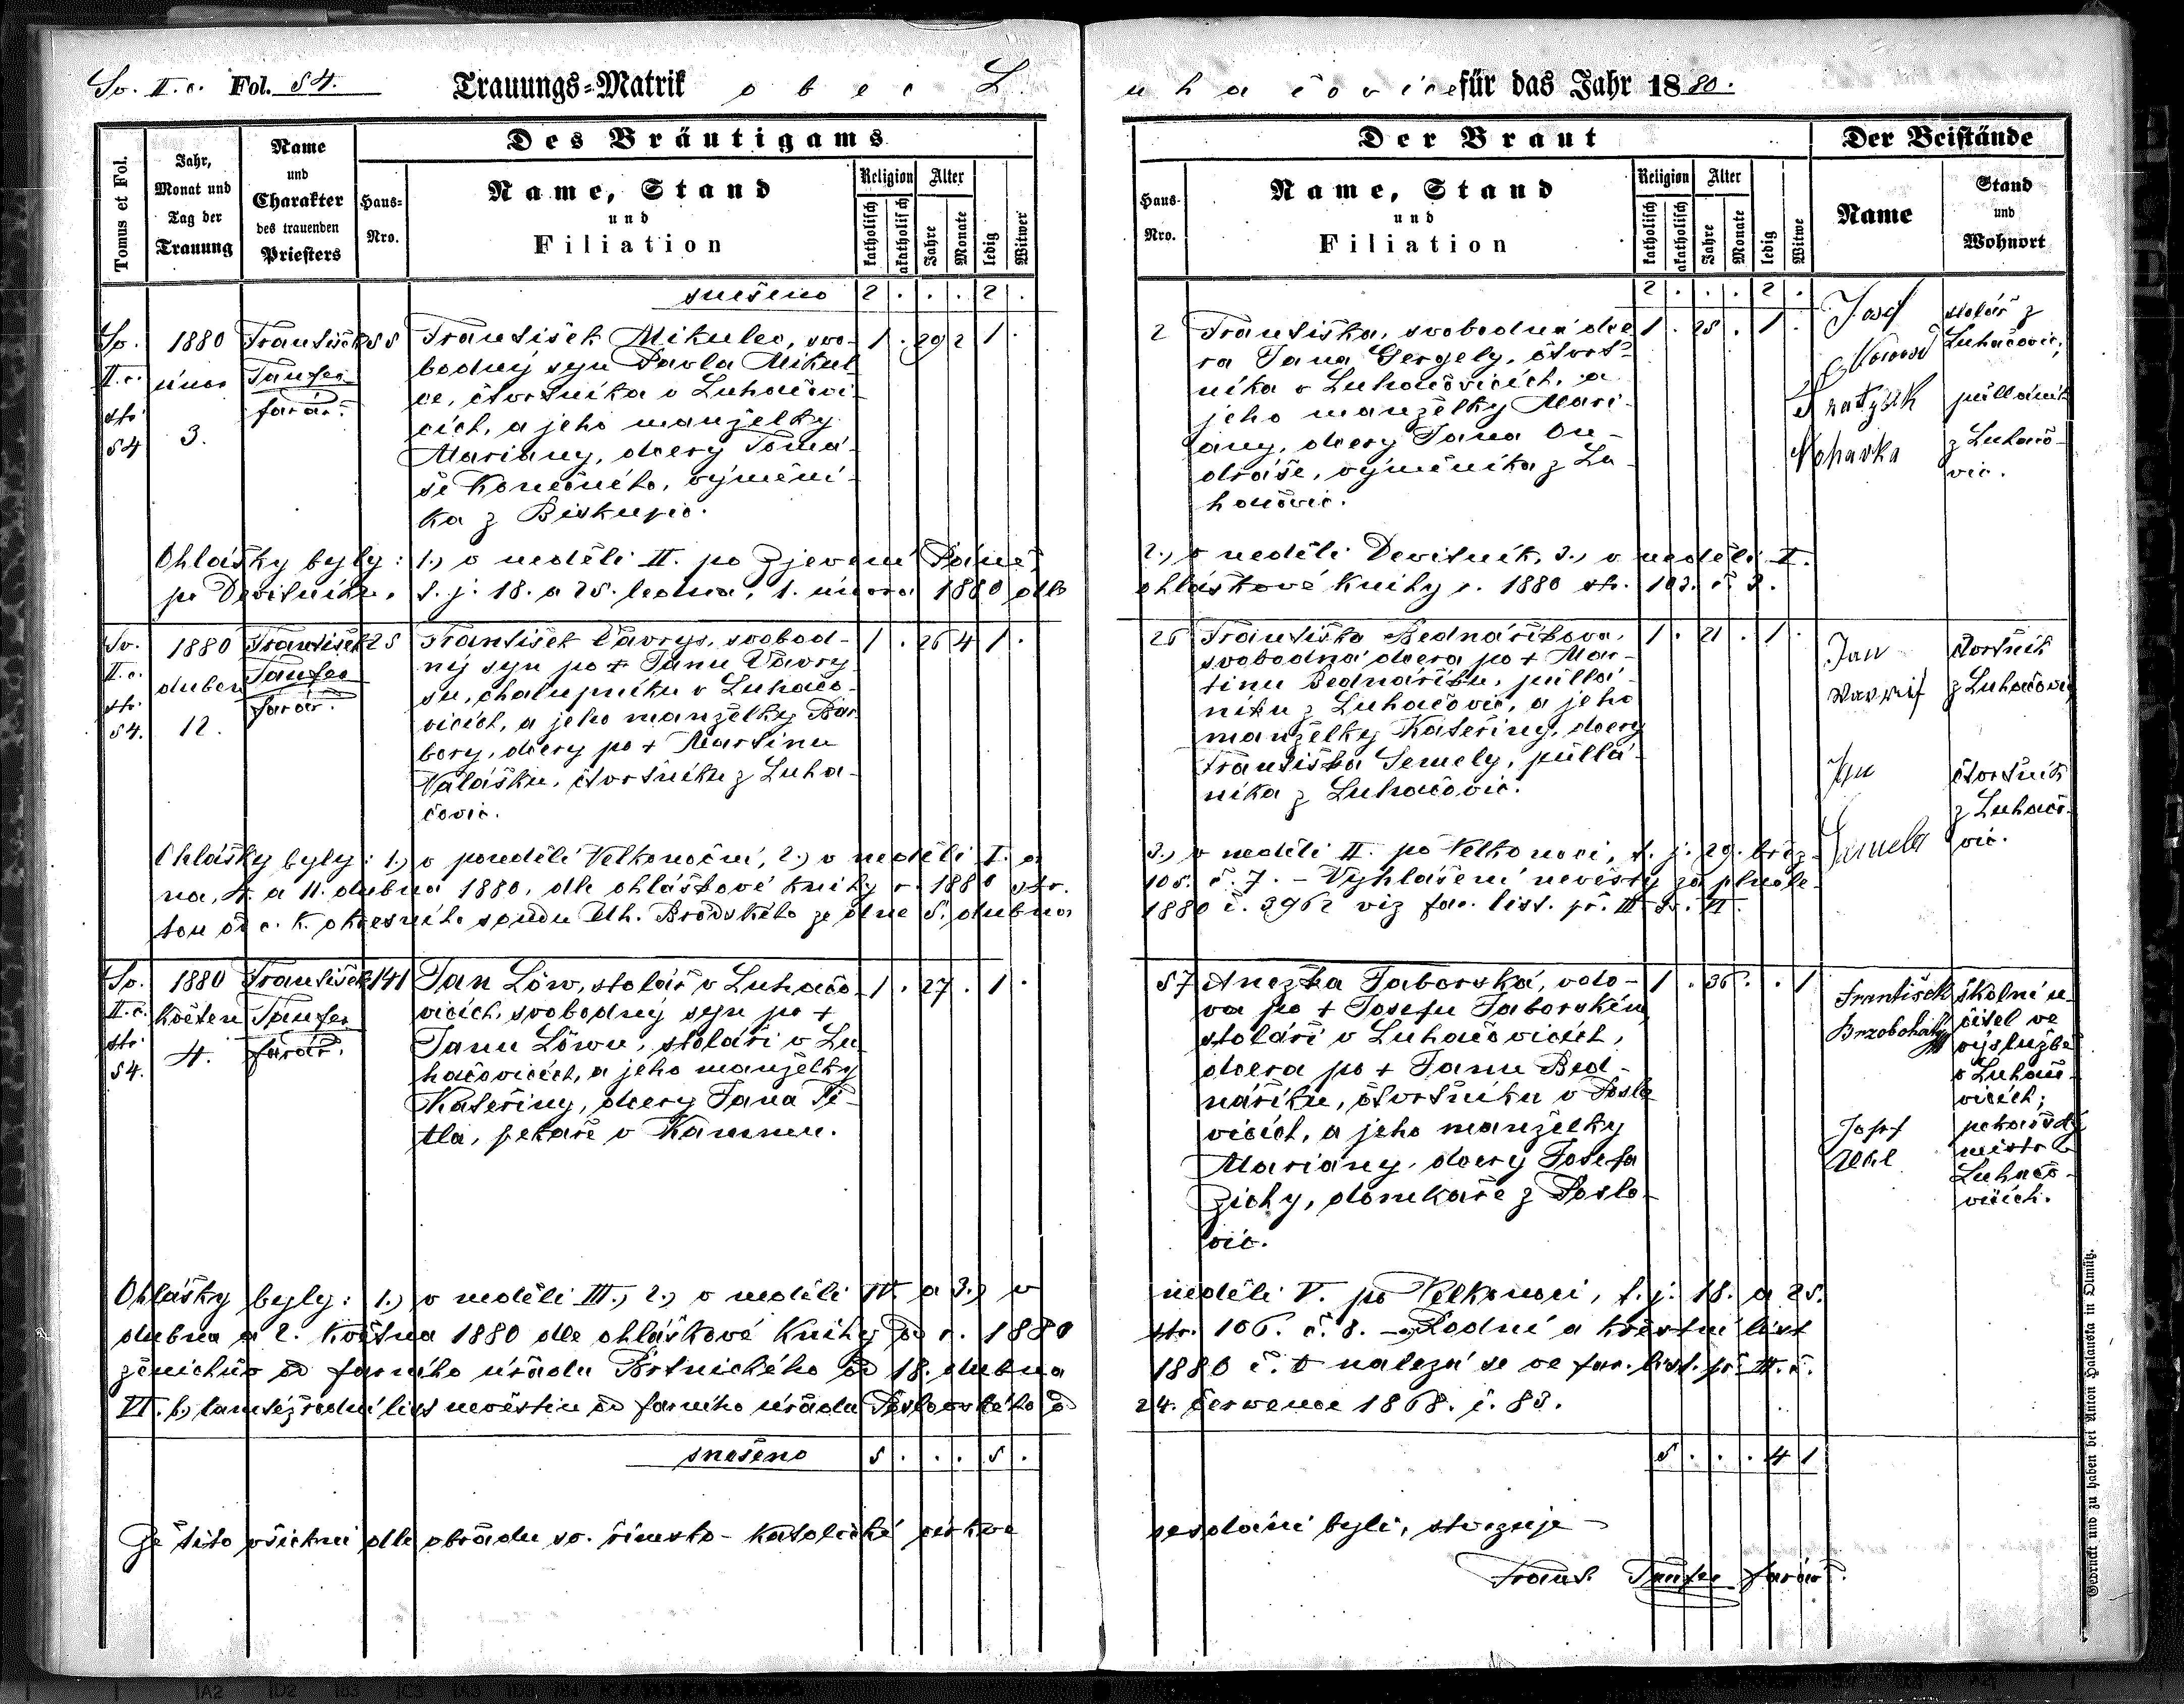 Sv. II. c. Fol. 54. Trauungs=Matrik obec L
uhačovice für das Jahr 1880.
Tomus et Fol.
Jahr,
Monat und
Tag der
Trauung
Name
und
Charakter
des trauenden
Priesters
Des Bräutigams
Haus=
Nro.
Name, Stand
und
Filiation
Religion
katholisch
akatholisch
Alter
Jahre
Monate
ledig
Witwer
Der Braut
Haus-
Nro.
Name, Stand
und
Filiation
Religion
katholisch
akatholisch
Alter
Jahre
Monate
ledig
Witwe
Der Beistände
Name
Stand
und
Wohnort
snešeno 2 . . . 2 .
2 . . . 2 .
Sv.
II. c.
str.
54
1880
únor
3.
František
Taufer
farář.
55
František Mikulec, svo-
bodný syn Pavla Mikul
ce, čtvrtníka v Luhačovi-
cích, a jeho manželky
Mariany, dcery Tomá-
še Konečného, výmění-
ka z Biskupic.
1 . 29 2 1 .
2
Františka, svobodná dce
ra Jana Gergely, čtvrt-
níka v Luhačovicích, a
jeho manželky Mari-
any, dcery Jana On-
dráše, výměníka z Lu-
hačovic.
1 . 25 . 1 .
Josef
stolář z
Luhačovic,
půlláník
z Luhačo-
vic.
Ohlášky byly: 1.) v neděli II. po Zjevení Páně,
2.) v neděli Devítník, 3.) v neděli I.
po Devítníku, t. j. 18. a 25. ledna, 1. února 1880 dle
ohláškové knihy r. 1880 str. 103. č. 3.
Sv.
II. c.
str.
54.
1880
duben
12.
František
Taufer
farář.
25
František Vavrys, svobod-
ný syn po + Janu Vavry
su, chalupníku v Luhačo-
vicích, a jeho manželky Bar
bory, dcery po + Martinu
Valášku, čtvrtníku z Luha-
čovic.
1 . 26 4 1 .
26
Františka Bednaříkova,
svobodná dcera po + Mar-
tinu Bednaříku, půllá-
níku z Luhačovic, a jeho
manželky Kateřiny, dcery
Františka Semely, půllá-
níka z Luhačovic.
1 . 21 . 1 .
Jan
čtvrtník
z Luhačovic,
Jan
Semela
čtvrtník
z Luhačo-
vic.
Ohlášky byly: 1.) v pondělí Velkonoční, 2.) v neděli I. a
3.) v neděli II. po Velkonoci, t. j. 29. břez-
na, 4. a 11. dubna 1880, dle ohláškové knihy r. 1880 str.
105. č. 7. – Vyhlášení nevěsty za plnole-
tou od c. k. okresního soudu Uh. Brodského ze dne 5. dubna
1880 č. 3962 viz far. list. př. III. Sv. VI.
Sv.
II. c.
str.
54.
1880
květen
4.
František
Taufer
farář.
141
Jan Löw, stolář v Luhačo-
vicích, svobodný syn po +
Janu Löwu, stoláři v Lu
hačovicích, a jeho manželky
Kateřiny, dcery Jana Ti-
tla, pekaře v Kamenu.
1 . 27 . 1 .
57
Anežka Taborská, vdo-
va po + Josefu Taborském
stoláři v Luhačovicích,
dcera po + Janu Bed-
naříku, čtvrtníku v Poslo
vicích, a jeho manželky
Mariany, dcery Josefa
Zichy, domkaře z Poslo-
vic.
1 . 36 . . 1
František
Brzobohatý
školní u-
čitel ve
výslužbě
v Luhačo-
vicích;
Josef
pekařský
mistr v
Luhačo-
vicích.
Ohlášky byly: 1.) v neděli III., 2.) v neděli IV. a 3.) v
neděli V. po Velkonoci, t. j. 18. a 25.
dubna a 2. května 1880 dle ohláškové knihy od r. 1880
str. 106. č. 8. – Rodný a křestní list
ženichův od farního úřadu Brtnického od 18. dubna
1880 č. nalezá se ve far. list. př. III. č.
VI. b.) tamtéž rodní list nevěstin od farního úřadu Poslovského od
24. července 1868. č. 83.
snešeno 5 . . . 5 .
5 . . . 4 1
Že tito všichni dle obřadu sv. římsko-katolické církve
sezdáni byli, stvrzuje
Frant. Taufer farář.
Gedruckt und zu haben bei Anton Halauska in Olmütz.